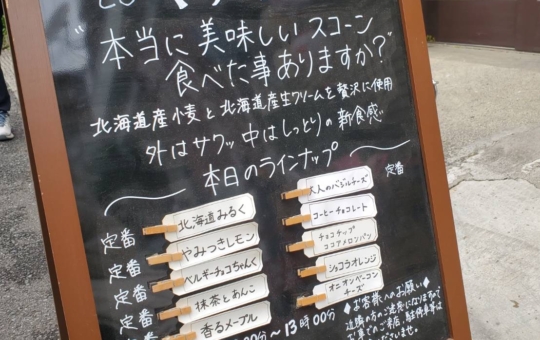 “本当に美味しいスコーン
食べた事ありますか?”
北海道産小麦と北海道産生クリームを贅沢に使用
外はサクッ 中はしっとりの新食感
本日のラインナップ
定番 北海道みるく
定番 やみつきレモン
定番 ベルギーチョコちゃんく
定番 抹茶とあんこ
定番 香るメープル
定番
大人のバジルチーズ
コーヒーチョコレート
チョコチップ
ココアメロンパン
ショコラオレンジ
オニオンベーコン
チーズ
00分〜13時00分
◆お客様へのお願い◆
近隣の方のご迷惑になりますので
お車でのご来店、駐停車等は
ございません。